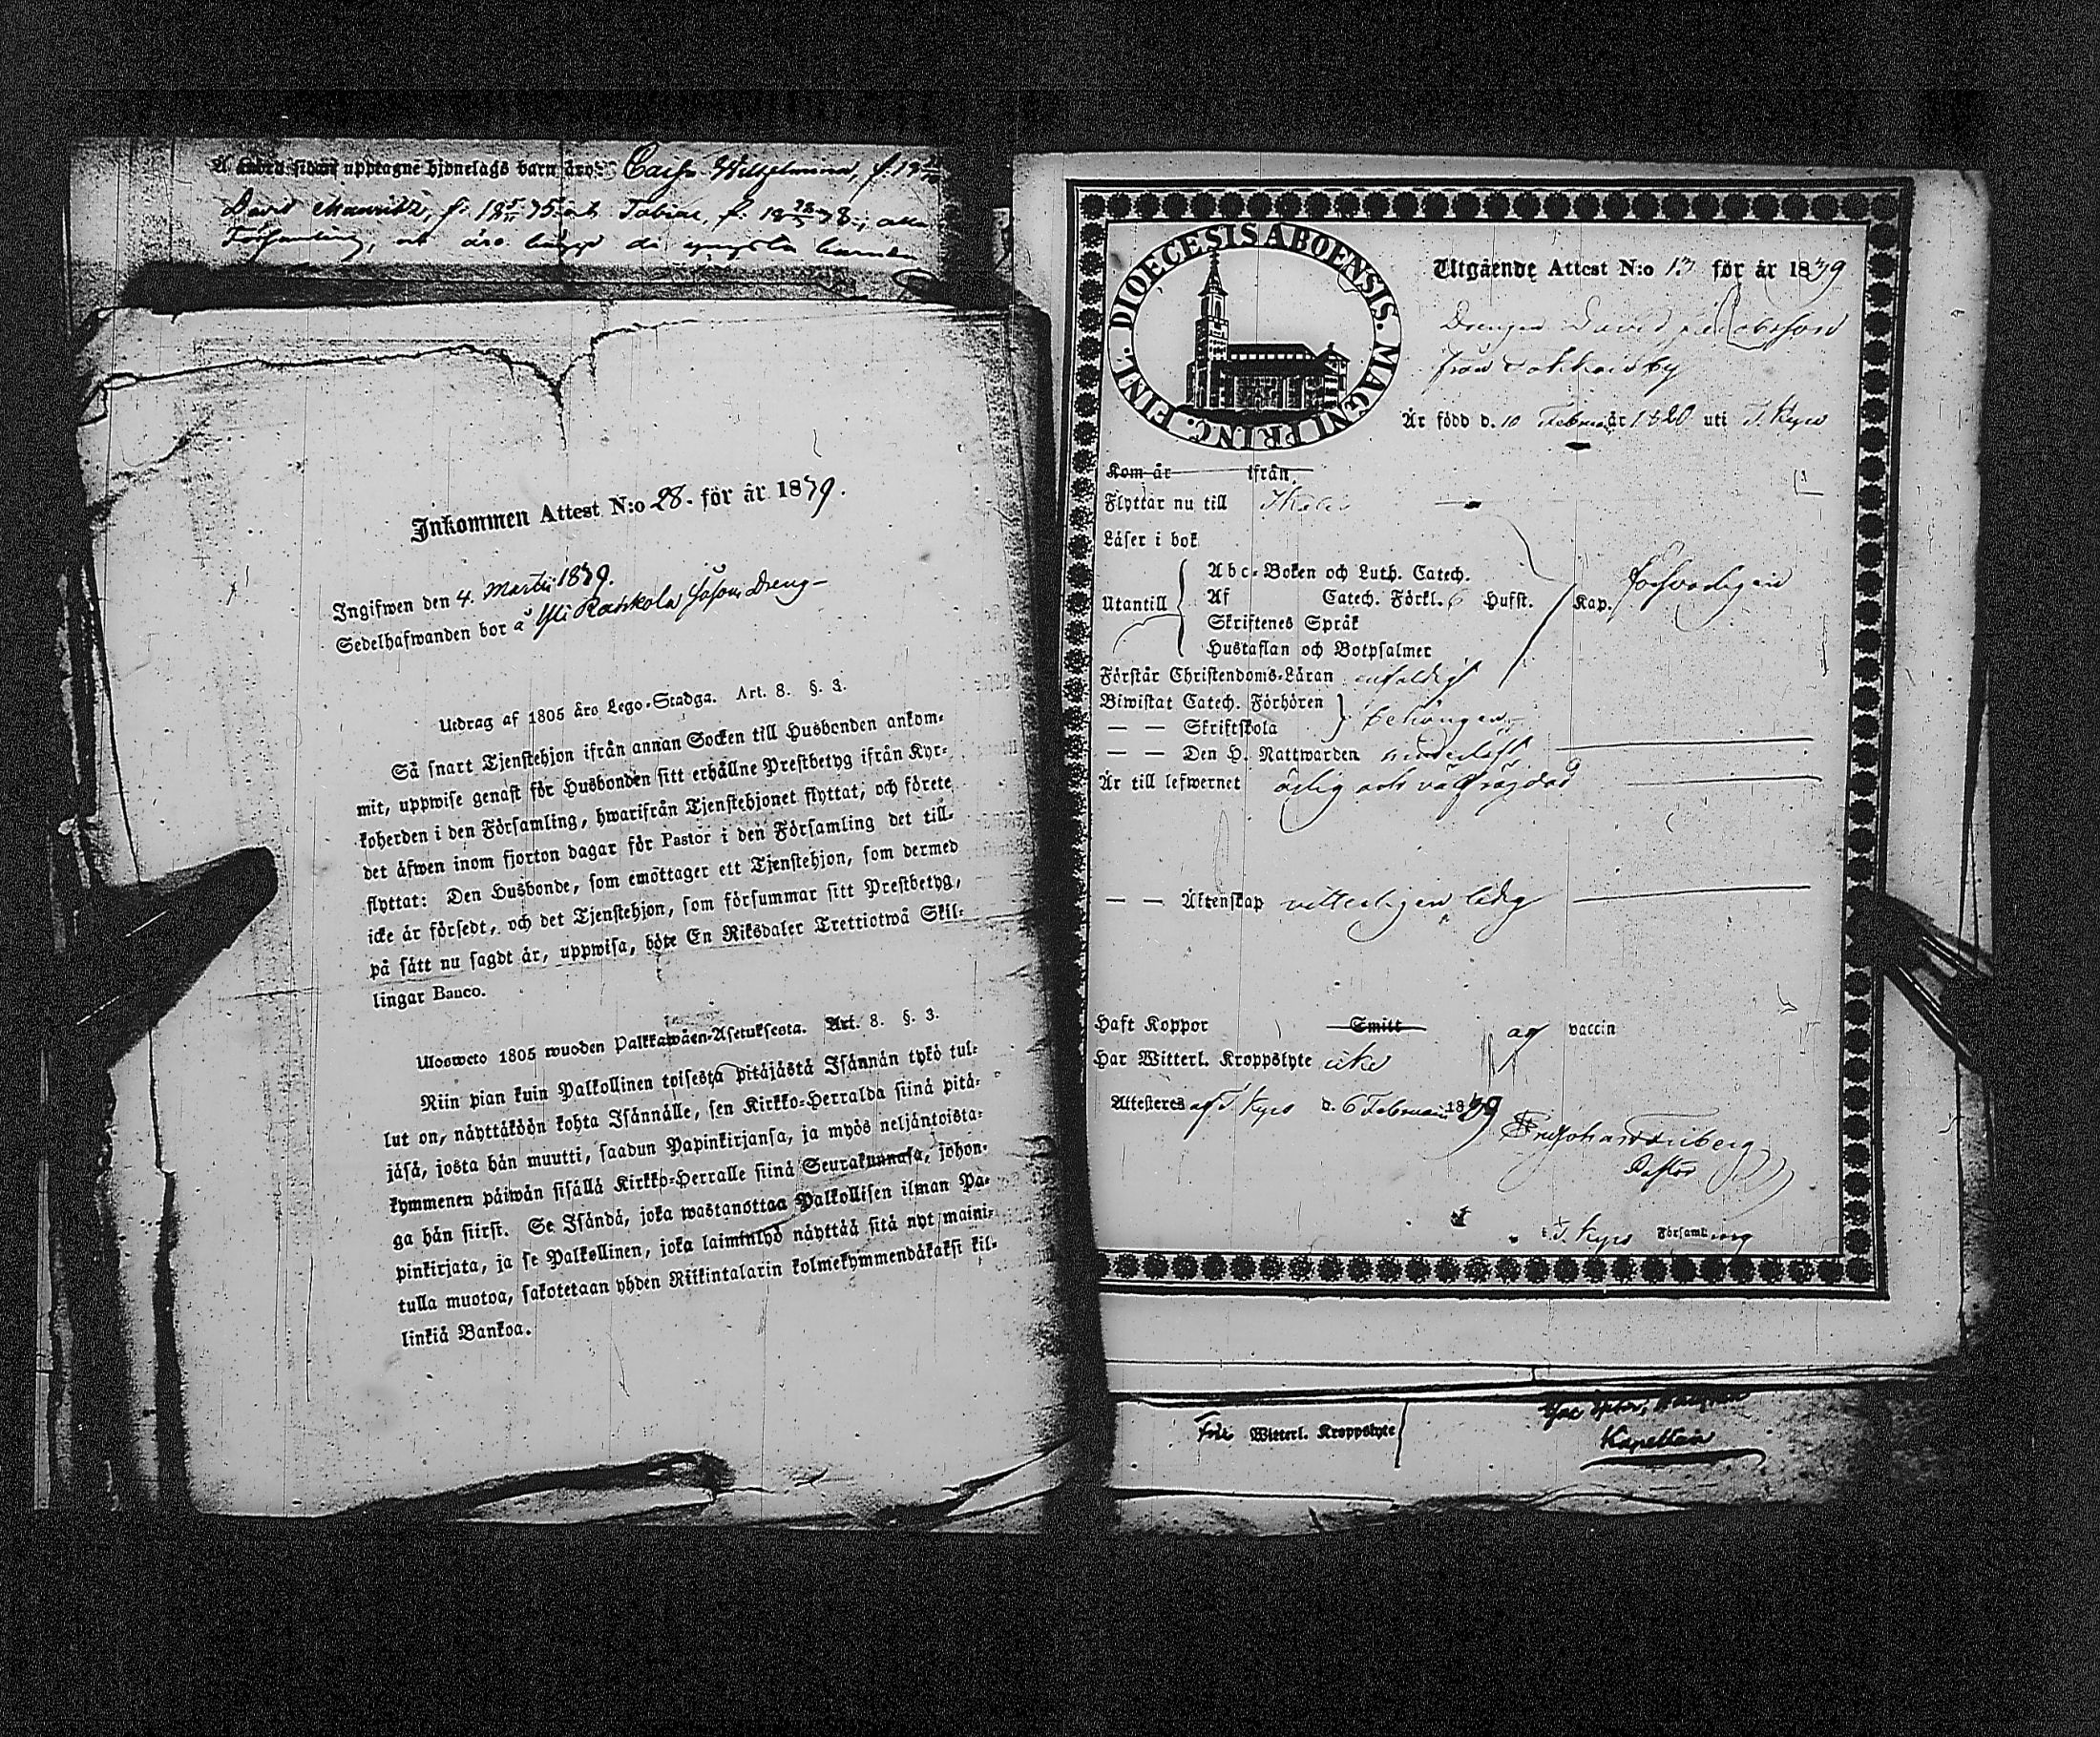 upptagne hjonelags barn äro: Wilhelmina, f. 18
David Mauritz, f. 18 75 och Tobias, f. 18 78; alla
Församling, och äro de yngsta barnen
Inkommen Attest N:o 28. för år 1839.
Ingifwen den 4. Martii 1839.
Sedelhafwanden bor å Yli Rankola såsom Dreng
Utdrag af 1805 års Lego-Stadga. Art. 8. §. 3.
Så snart Tjenstehjon ifrån annan Socken till Husbonden ankom-
mit, uppwise genast för Husbonden sitt erhållne Prestbetyg ifrån Kyr-
koherden i den Församling, hwarifrån Tjenstehjonet flyttat, och förete
det äfwen inom fjorton dagar för Pastor i den Församling det till-
flyttat: Den Husbonde, som emottager ett Tjenstehjon, som dermed
icke är försedt, och det Tjenstehjon, som försummar sitt Prestbetyg,
på sätt nu sagdt är, uppwisa, böte En Riksdaler Trettiotwå Skil-
lingar Banco.
Ulosweto 1805 wuoden Palkkawäen-Asetuksesta. Art. 8. §. 3.
Niin pian kuin Palkollinen toisesta pitäjästä Isännän tykö tul-
lut on, näyttäköön kohta Isännälle, sen Kirkko-Herralda siinä pitä-
jäsä, josta hän muutti, saadun Papinkirjansa, ja myös neljäntoista-
kymmenen päiwän sisällä Kirkko-Herralle siinä Seurakunnasa, johon-
ga hän siirsi. Se Isändä, joka wastanottaa Palkollisen ilman Pa-
pinkirjata, ja se Palkollinen, joka laiminlyö näyttää sitä nyt maini-
tulla muotoa, sakotetaan yhden Riikintalarin kolmekymmendäkaksi kil-
linkiä Bankoa.
DIOECESIS ABOENSIS. MAGNI PRINC. FINL.
Utgående Attest N:o 13 för år 1839
Drengen David Jacobsson
från
Är född d. 10 Februarii år 1820 uti T. Kyro
Kom år ifrån
Flyttar nu till
Läser i bok
Utantill
Abc-Boken och Luth. Catech.
Af Catech. Förkl. 6 Hufst. Kap. försvarligen
Skriftenes Språk
Hustaflan och Botpsalmer
Förstår Christendoms-Läran enfaldigt
Biwistat Catech. Förhören
— — Skriftskola behörigen
— — Den H. Nattwarden
Är till lefwernet ärlig och välfrägdad
— — Äktenskap vitterligen ledig
Haft Koppor Smitt af vaccin
Har Witterl. Kroppslyte icke
Attesteres af T. Kyro d. 6 Februarii 1839
Pastor
i T. Kyro Församling
Witterl. Kroppslyte
Kapellan